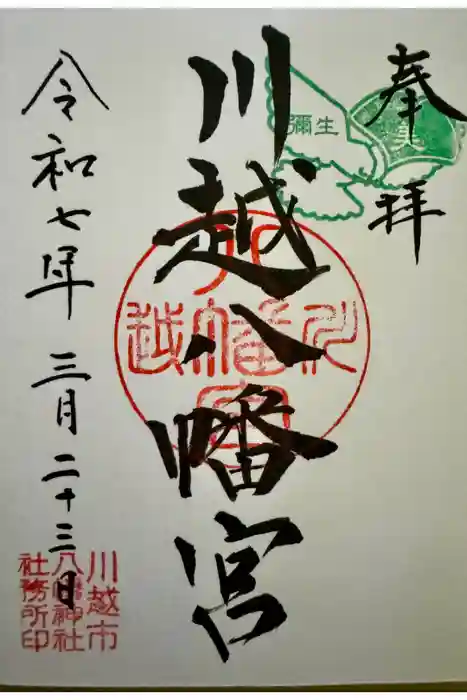 奉拝
彌生
川越八幡宮
川越八幡宮
令和七年 三月二十三日
川越市
八幡神社
社務所印